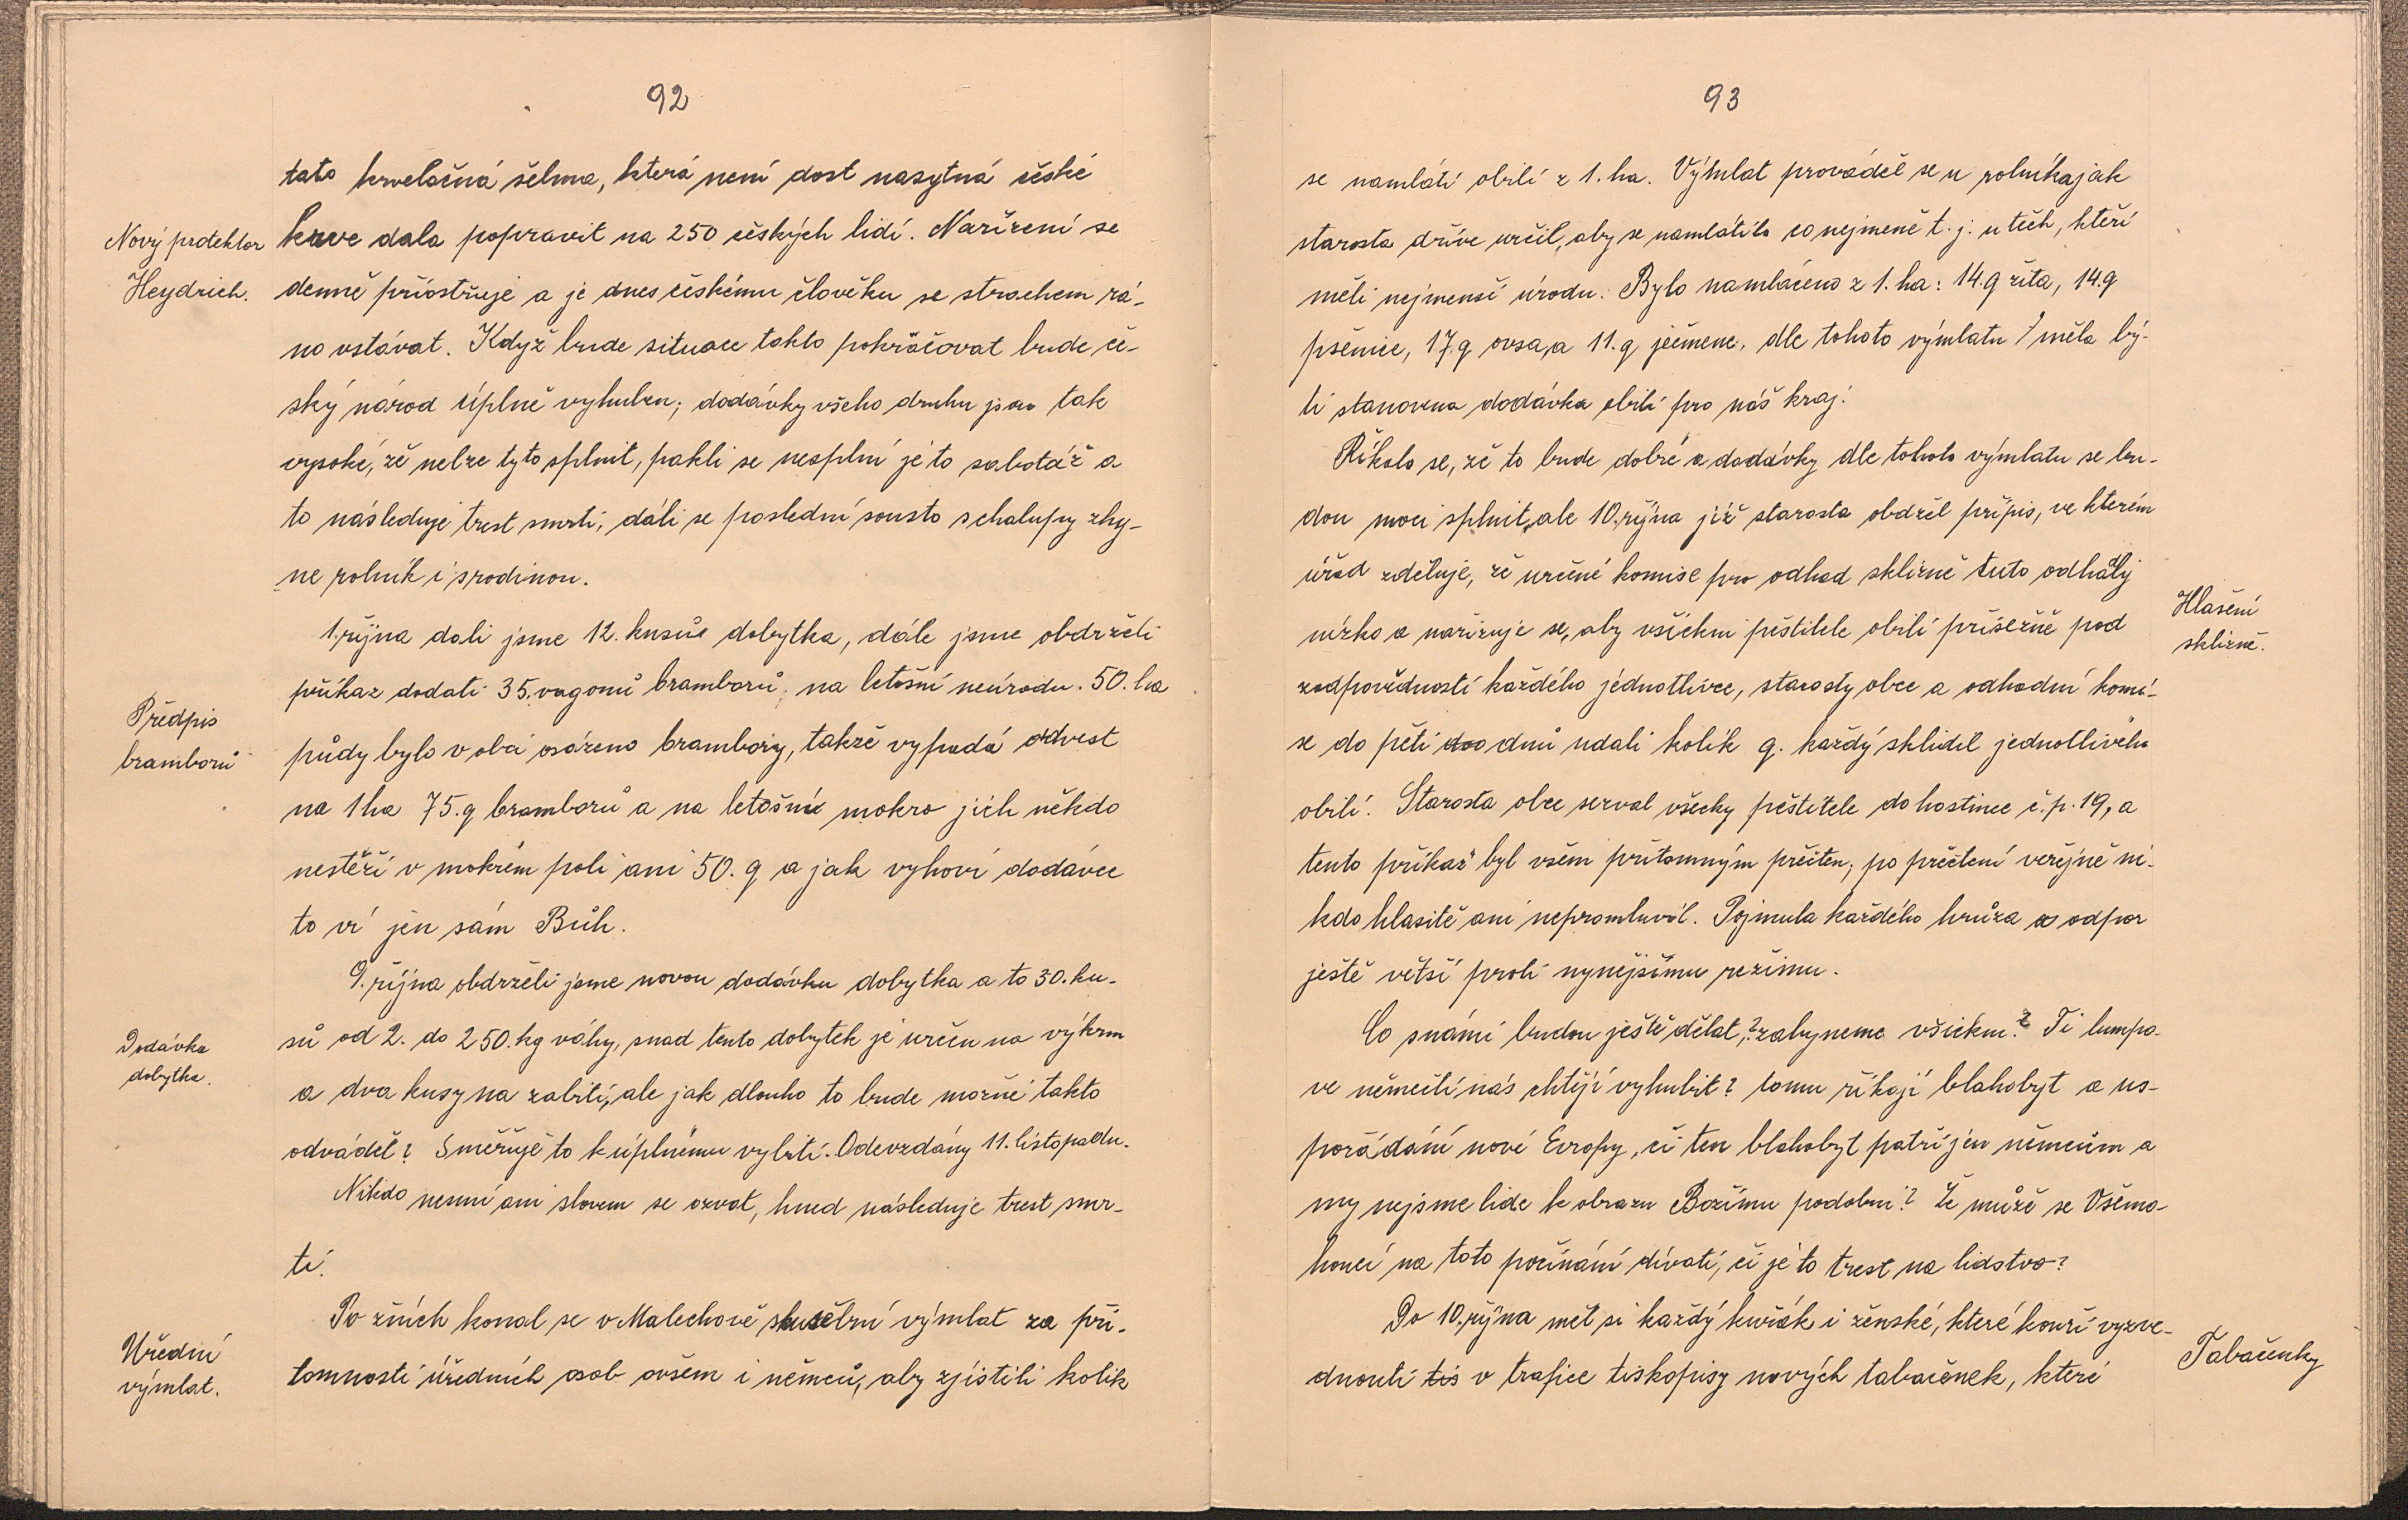 92
tato krvelačná šelma, která není dost nasytná české
Nový protektor
Heydrich.
krve dala popravit na 250 českých lidí. Nařízení se
denně přiostřuje a je dnes českému člověku se strachem rá-
no vstávat. Když bude situace takto pokračovat bude če-
ský národ úplně vyhuben; dodávky všeho druhu jsou tak
vysoké, že nelze tyto splnit, pakli se nesplní je to sabotáž a
to následuje trest smrti, dáli se poslední sousto s chalupy zhy-
ne rolník i s rodinou.
1. října dali jsme 12. kusů dobytka, dále jsme obdrželi
příkaz dodati 35. vagonů bramborů, na letošní neúrodu. 50. ha
Předpis
bramborů
půdy bylo v obci osázeno brambory, takže vypadá odvést
na 1 ha 75. q bramborů a na letošní mokro jich někdo
nestěží v mokrém poli ani 50. q a jak vyhoví dodávce
to ví jen sám Bůh.
9. října obdrželi jsme novou dodávku dobytka a to 30. ku-
Dodávka
dobytka.
sů od 2. do 250. kg váhy, snad tento dobytek je určen na výkrm
a dva kusy na zabití, ale jak dlouho to bude možné takto
odvádět? Směřuje to k úplnému vybití. Odevzdány 11. listopadu.
Nikdo nesmí ani slovem se ozvat, hned následuje trest smr-
ti.
Po žních konal se v Malechově zkušební výmlat za pří-
Úřední
výmlat.
tomnosti úředních osob ovšem i němců, aby zjistili kolik
93
se namlátí obilí z 1. ha. Výmlat prováděl se u rolníka jak
starosta dříve určil, aby se namlátilo co nejméně t. j. u těch, kteří
měli nejmenší úrodu. Bylo namláceno z 1. ha: 14. q žita, 14. q
pšenice, 17. q ovsa, a 11. q ječmene, dle tohoto výmlatu měla bý-
ti stanovena dodávka obilí pro náš kraj.
Říkalo se, že to bude dobré a dodávky dle tohoto výmlatu se bu-
dou moci splnit, ale 10. října již starosta obdržel přípis, ve kterém
úřad zděluje, že určené komise pro odhad sklizně tuto odhadly
nízko a nařizuje se, aby všickni pěstitele obilí přísežně pod
Hlašení
sklizně.
zodpovědností každého jednotlivce, starosty obce a odhadní komi-
se do pěti dnů udali kolik q. každý sklidil jednotlivého
obilí. Starosta obce sezval všecky pěstitele do hostince č. p. 19, a
tento příkaz byl všem přítomným přečten, po přečtení veřejně ni-
kdo hlasitě ani nepromluvil. Pojmula každého hrůza a odpor
ještě větší proti nynějšímu režimu.
Co s námi budou ještě dělat,? zahyneme všickni? Ti lumpo-
ve němečtí nás chtějí vyhubit? tomu říkají blahobyt a us-
pořádání nové Evropy, či ten blahobyt patří jen němcům a
my nejsme lide k obrazu Božímu podobni? Že může se Všemo-
houcí na toto počínání dívati, či je to trest na lidstvo?
Do 10. října měl si každý kuřák i ženské, které kouří vyzve-
Tabačenky
dnouti tis v trafice tiskopisy nových tabačenek, které